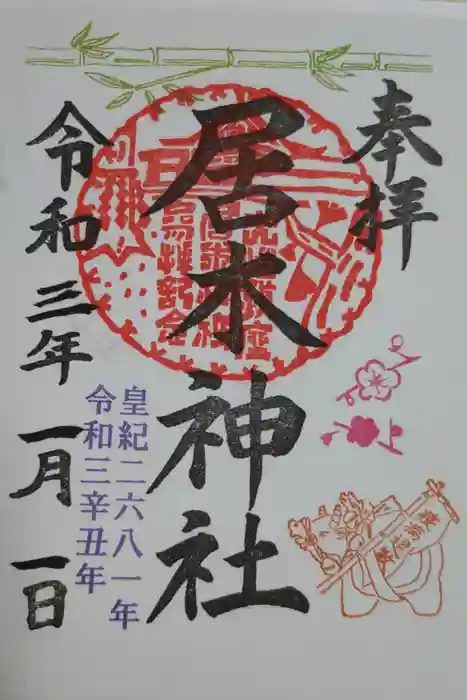 奉拝
居木神社
令和三年一月一日
皇紀二六八一年
令和三辛丑年